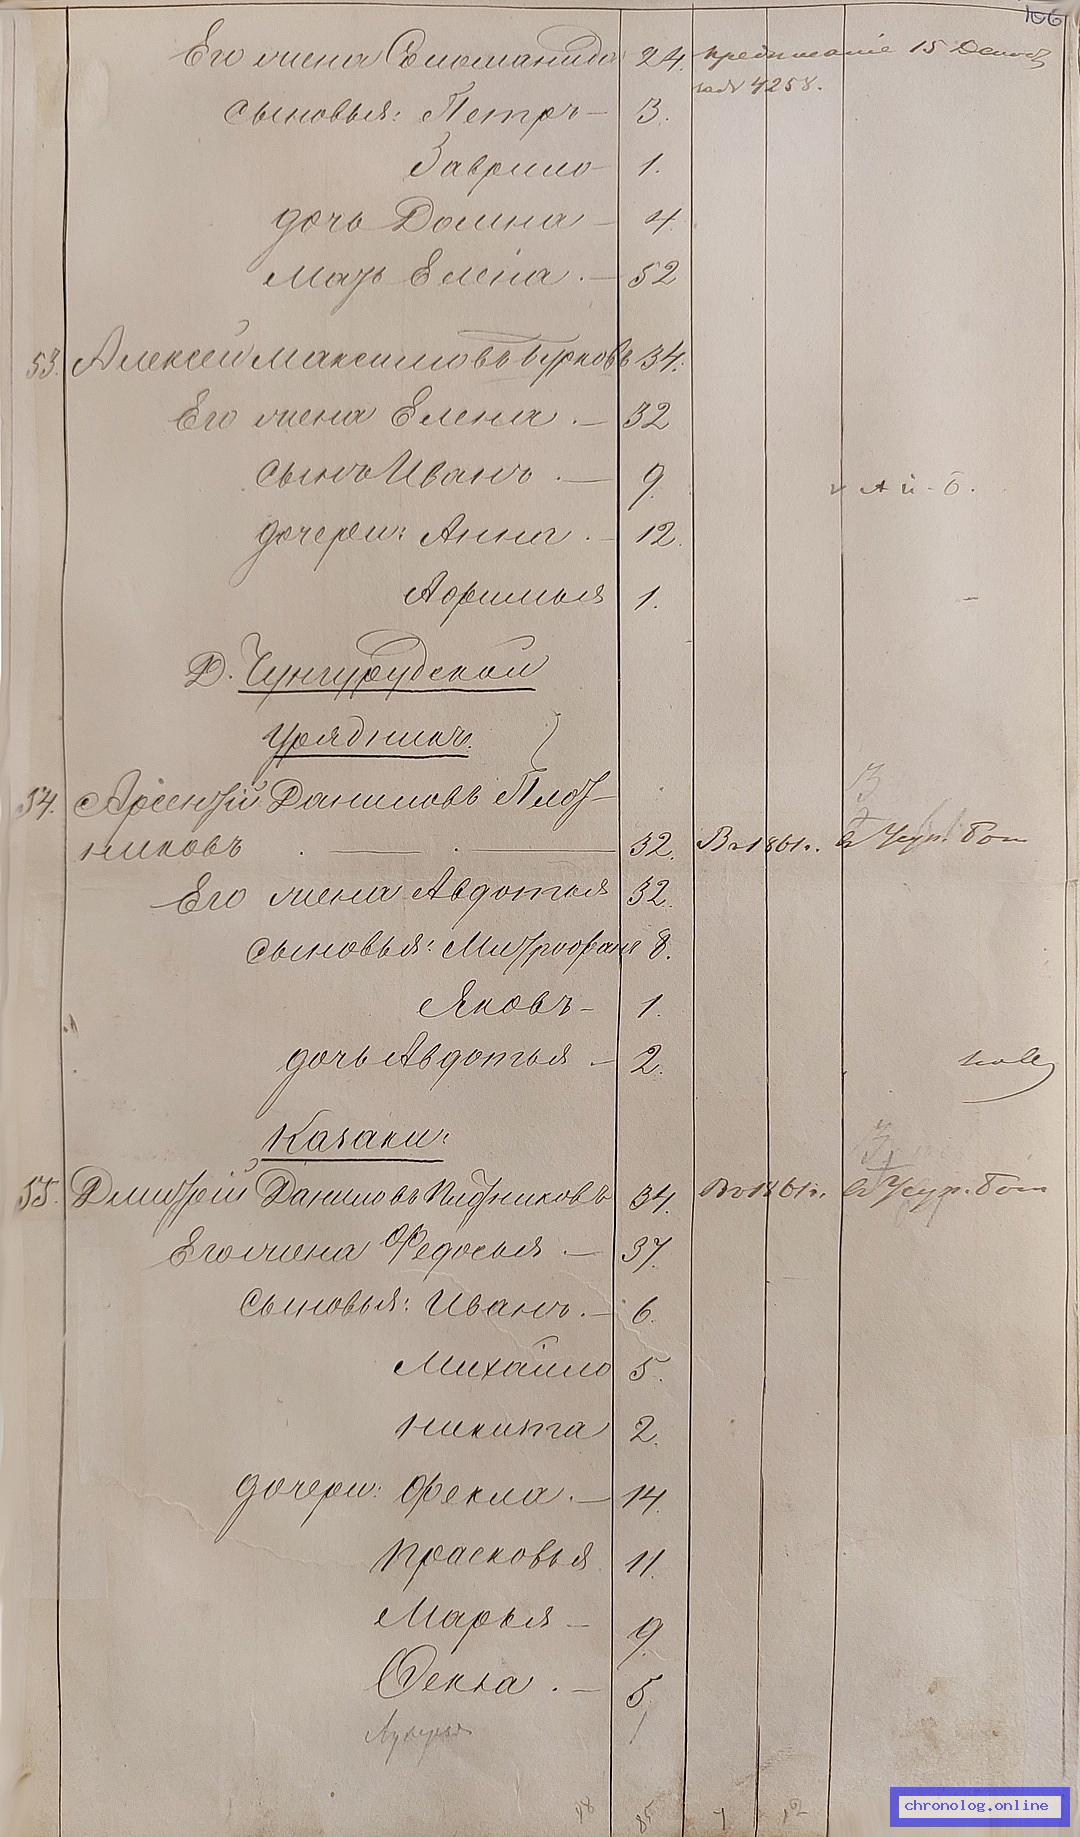 106
Его жена Соломанида 24. предписаніе 15 Декаб
за № 4258.
сыновья: Петръ — 3.
Гаврило — 1.
дочь Домна — 4
мать Елена. — 52
53. Алексей Максимовъ Бурковъ 34.
Его жена Елена. — 32
сынъ Иванъ. — 9.
дочери: Анна. — 12.
Афимья 1.
Д. Чунгурудской
Урядникъ.
54. Арсентій Даниловъ Плот-
никовъ. — 32. Въ 1861 г. в Усур. бат
Его жена Авдотья 32.
сыновья: Митрофанъ 8.
Яковъ — 1.
дочь Авдотья — 2.
Казаки:
55. Дмитрій Даниловъ Плотниковъ 34. Въ 1861 г. в Усур. бат
Его жена Федосья. — 37.
сыновья: Иванъ. — 6.
Михайло 5.
Никита 2.
дочери: Фекла. — 14.
Прасковья 11.
Марья — 9.
Фекла. — 5
Лукерья 1
85 7 12
chronolog.online